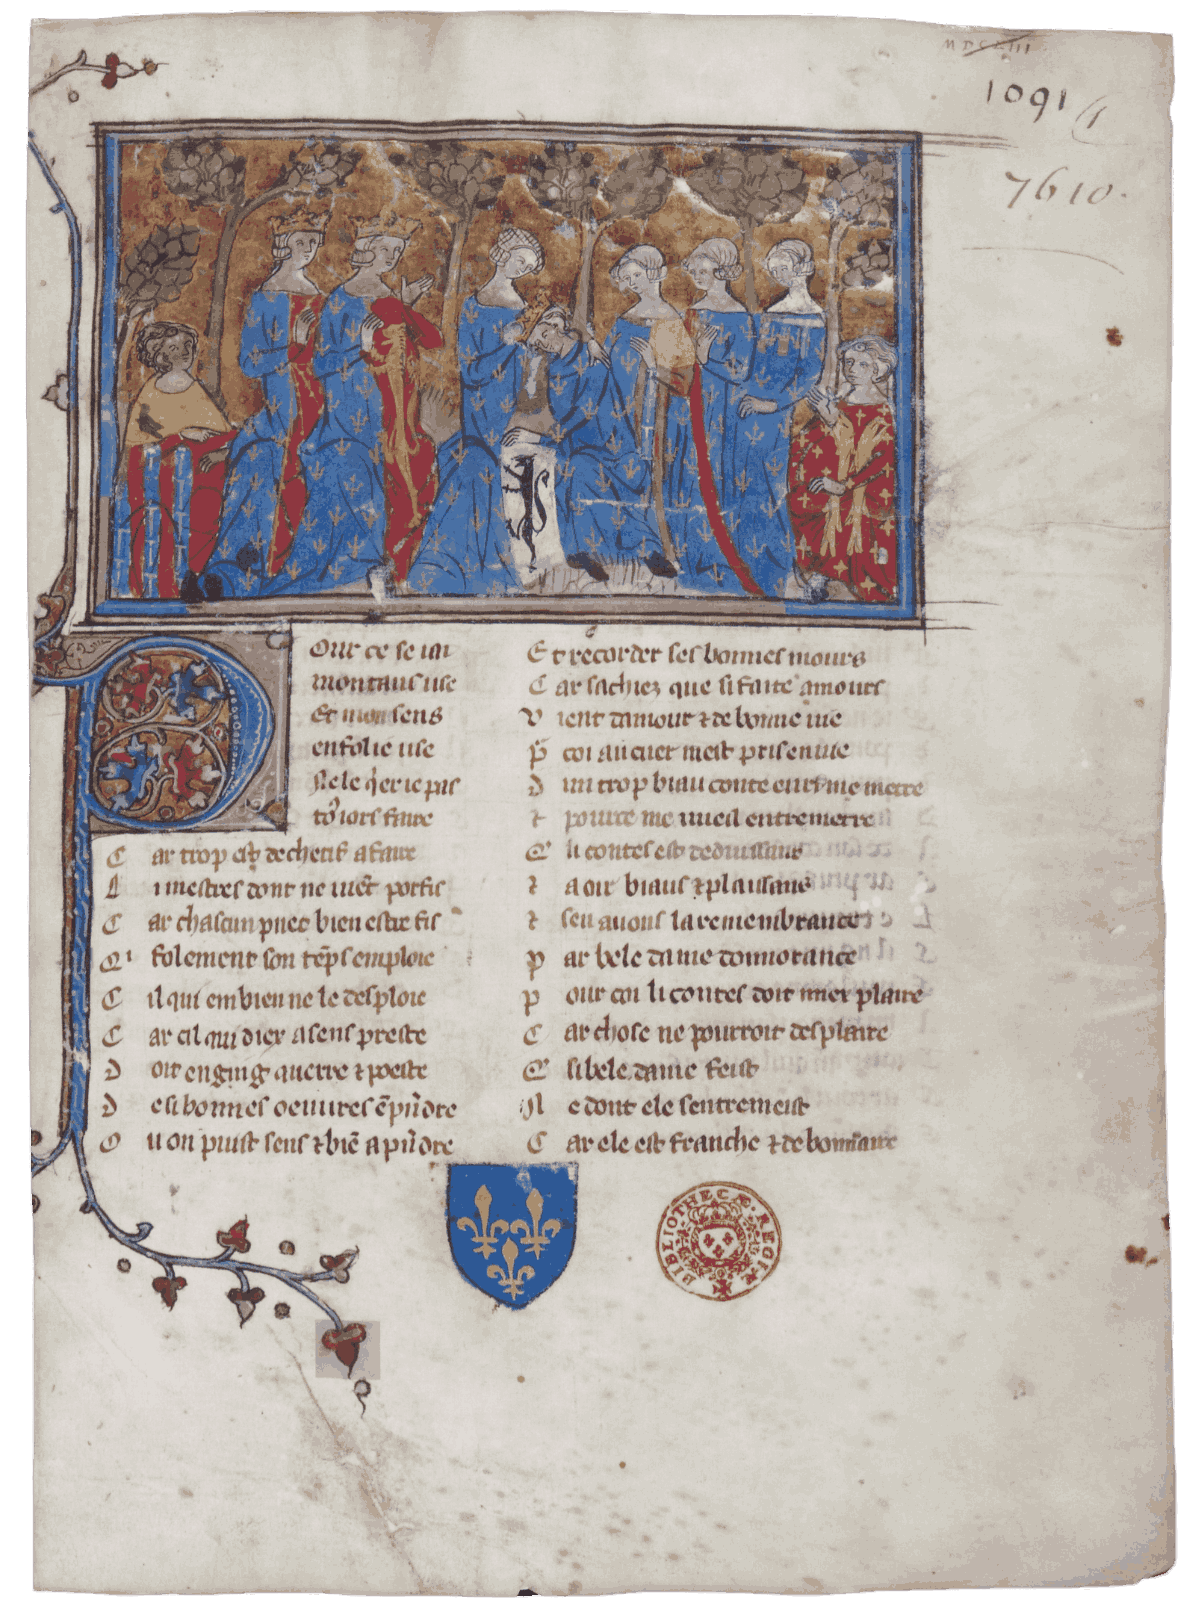 MDCLIII
1091
1
7610.
Our ce se iai
mon tans use
Et mon sens
en folie use
Ne le q̄er ie pas
to᷒iors faire
C ar trop est de chetif afaire
L i mestres dont ne viēt porfis
C ar chascun puet bien estre fis
Q' folement son tēps emploie
C il qui em bien ne le desploie
C ar cil qui diex a sens preste
D oit enging querre ⁊ poeste
D es bonnes oeuures ēpn̄dre
O u on puist sens ⁊ biē apn̄dre
E t recorder ses bonnes mours
C ar sachiez que si faite amours
V ient damour ⁊ de bonne uie
P̄ coi au cuer mest prise nuie
D un trop biau conte en r̄me metre
⁊ pource me uueil entremetre
Q' li contes est deduisans
⁊ a oir biaus ⁊ plaisans
⁊ sen auons la remembrance
P ar bele dame donnorance
P our coi li contes doit miex plaire
C ar chose ne pourroit desplaire
Q' si bele dame feist
N e dont ele sentremeist
C ar ele est franche ⁊ de bonnaire
BIBLIOTHECÆ REGIÆ